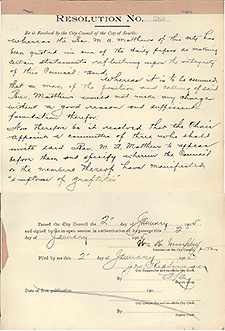 RESOLUTION No. 382
Be it Resolved by the City Council of the City of Seattle:
Whereas the Rev. M. A. Matthews of this city has
been quoted in one of the daily papers as making
certain statements reflecting upon the integrity
of this Council: and,
Whereas it is to be assumed
that a man of the position and calling of said
Rev. Matthews would not make any charges
without a good reason and sufficient
foundation therefor.
Now therefore be it resolved that the Chair
appoint a committee of three who shall
invite said Rev. M. A. Matthews to appear
before them and specify wherein the Council
or the members thereof have manifested
"symptoms of grafters"
Passed the City Council the 2" day of January 1905
and signed by me in open session in authentication of its passage this 2"
day of January
President of the City Council
Filed by me this 2" day of January 1905
City Comptroller and ex-officio City Clerk.
By
Deputy Clerk
Date of first publication 190
City Comptroller and ex-officio City Clerk.
By
Deputy Clerk